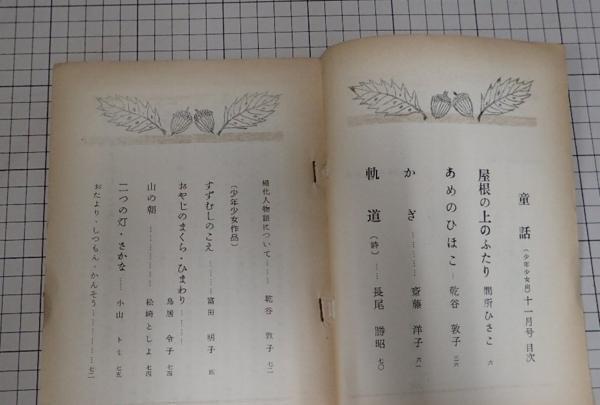 童話（少年少女用）十一月号 目次
屋根の上のふたり 間所ひさこ 六
あめのひぼこ 乾谷 敦子 二六
かぎ 斎藤 洋子 六一
軌道（詩） 長尾 勝昭 七〇
擬化人物語について 乾谷 敦子 七二
（少年少女作品）
すずむしのこえ 富田 明子
おやじのまくら・ひまわり 鳥居 令子 七四
山の朝 松崎としよ 七四
二つの灯・さかな 小山 トミ 七五
おたより・しつもん・かんそう 七二